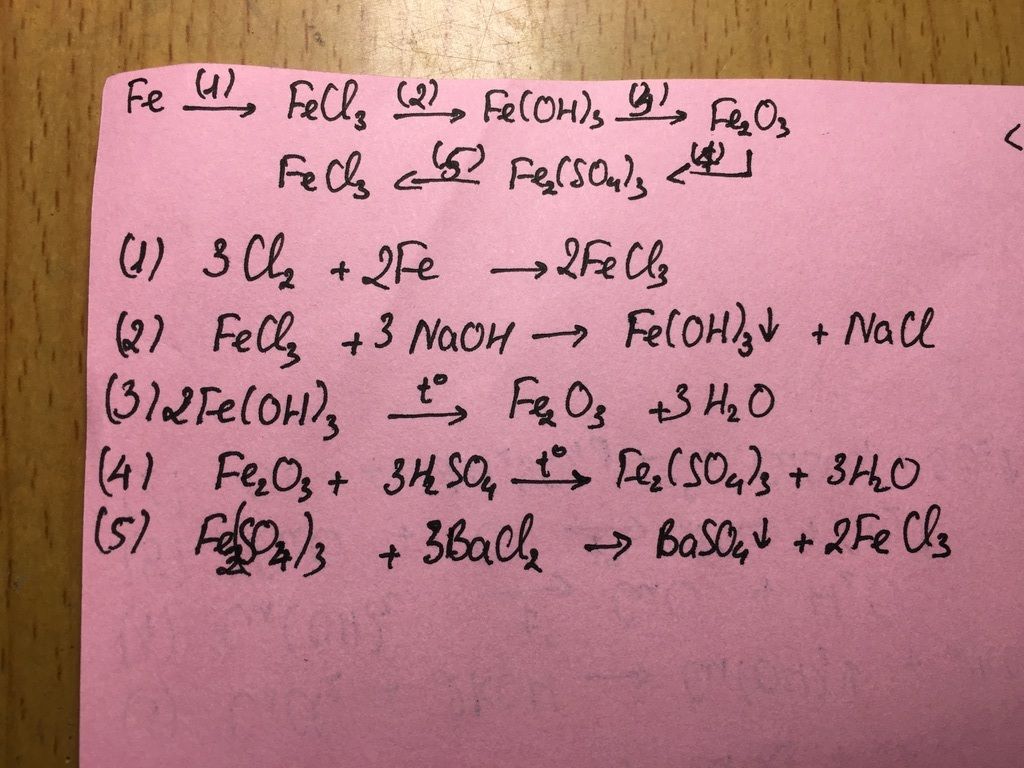 Fe (1)→ FeCl₃ (2)→ Fe(OH)₃ (3)→ Fe₂O₃
FeCl₃ ←(5) Fe₂(SO₄)₃ ←(4)
(1) 3Cl₂ + 2Fe → 2FeCl₃
(2) FeCl₃ + 3NaOH → Fe(OH)₃↓ + NaCl
(3) 2Fe(OH)₃ t°→ Fe₂O₃ + 3H₂O
(4) Fe₂O₃ + 3H₂SO₄ t°→ Fe₂(SO₄)₃ + 3H₂O
(5) Fe₂(SO₄)₃ + 3BaCl₂ → BaSO₄↓ + 2FeCl₃